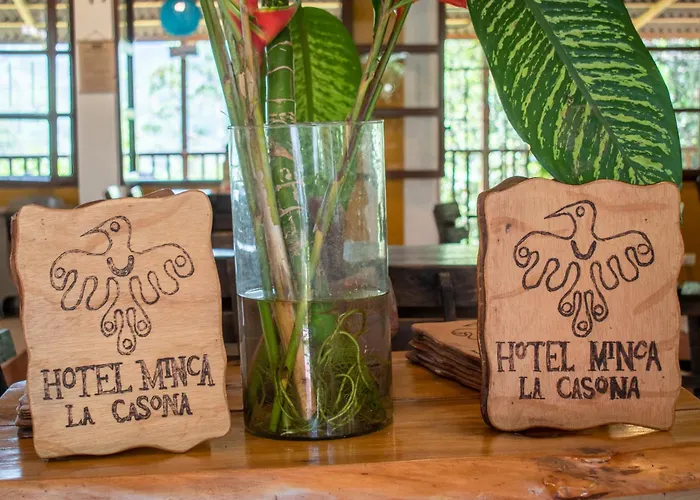 HOTEL MINCA
LA CASONA
HOTEL MINCA
LA CASONA